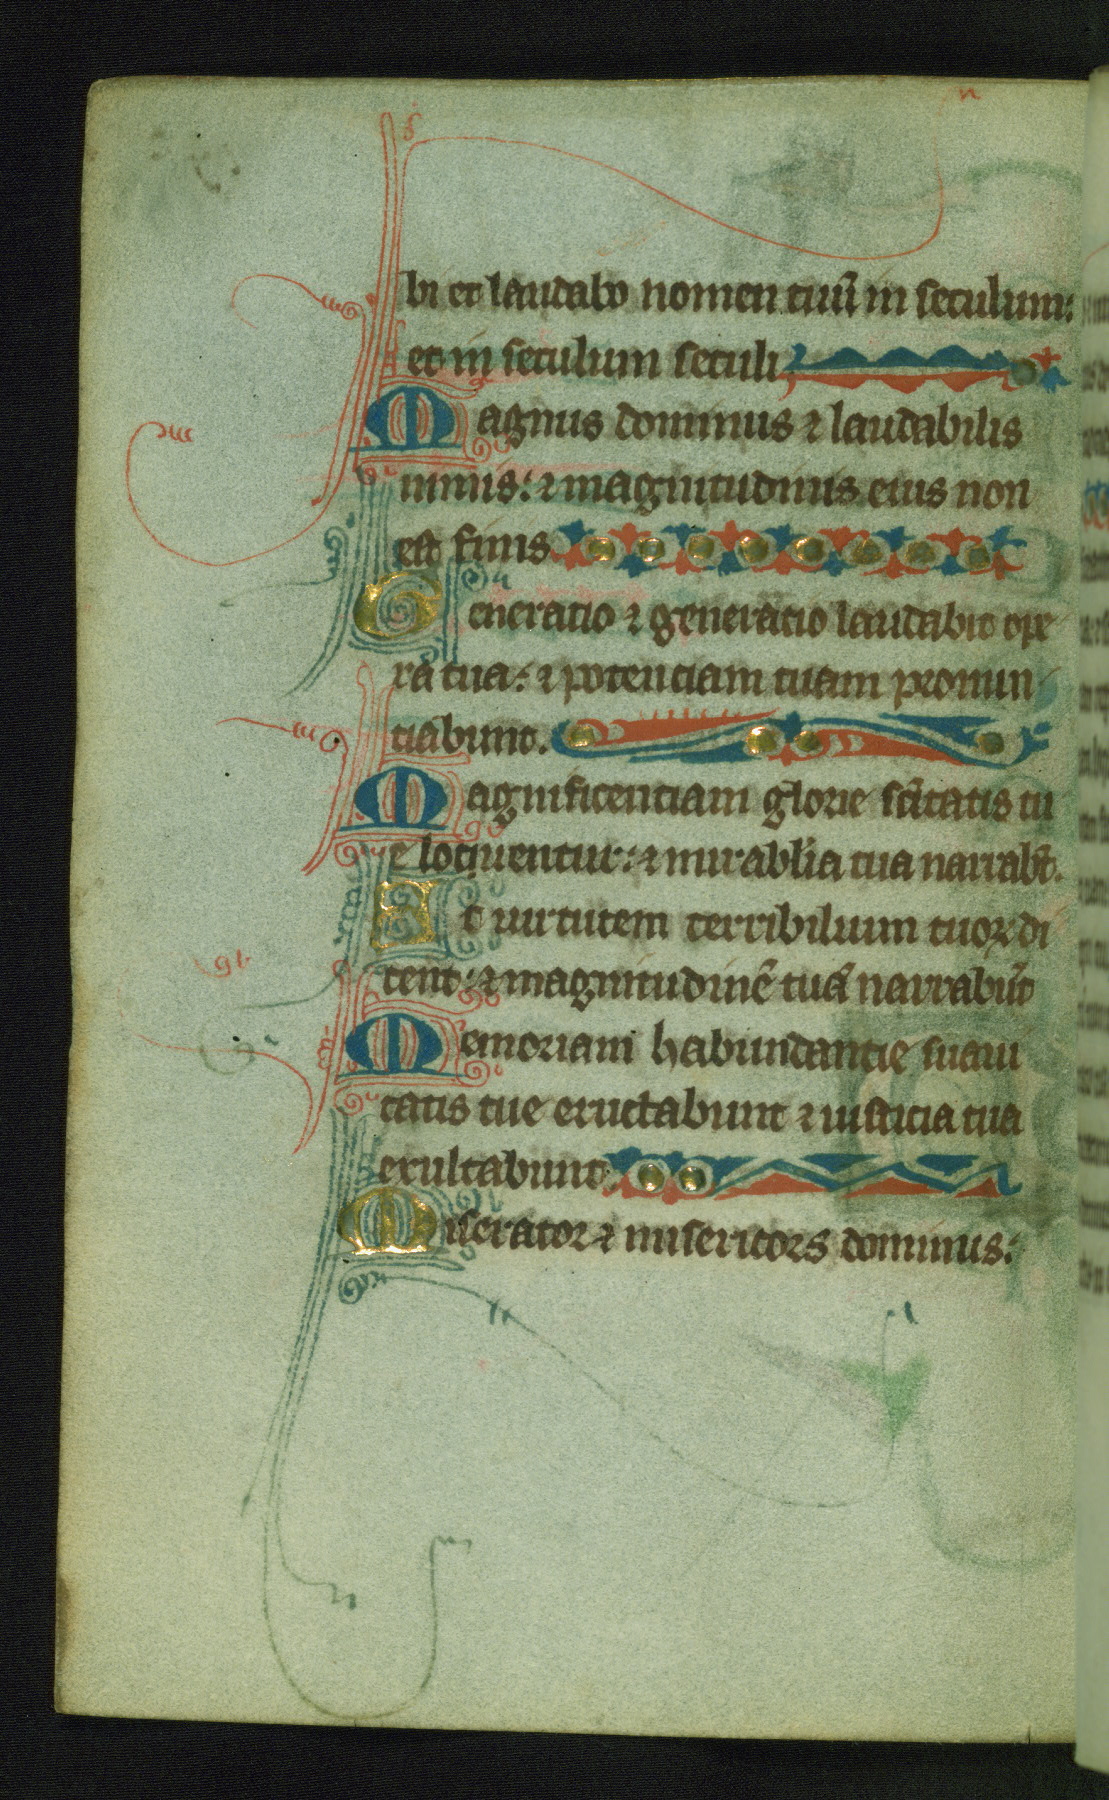 bi et laudabo nomen tuũ in seculum:
et in seculum seculi
Magnus dominus ⁊ laudabilis
nimis: ⁊ magnitudinis eius non
est finis
Generatio ⁊ generatio laudabit ope
ra tua: ⁊ potentiam tuam pronun
tiabunt.
Magnificentiam glorie sc̃itatis tu
e loquentur: ⁊ mirabl̓ia tua narrab̃t.
Et uirtutem terribilium tuoꝝ di
cent: ⁊ magnitudinẽ tuã narrabũt
Memoriam habundantie suaui
tatis tue eructabunt ⁊ iusticia tua
exultabunt
Miserator ⁊ misericors dominus: